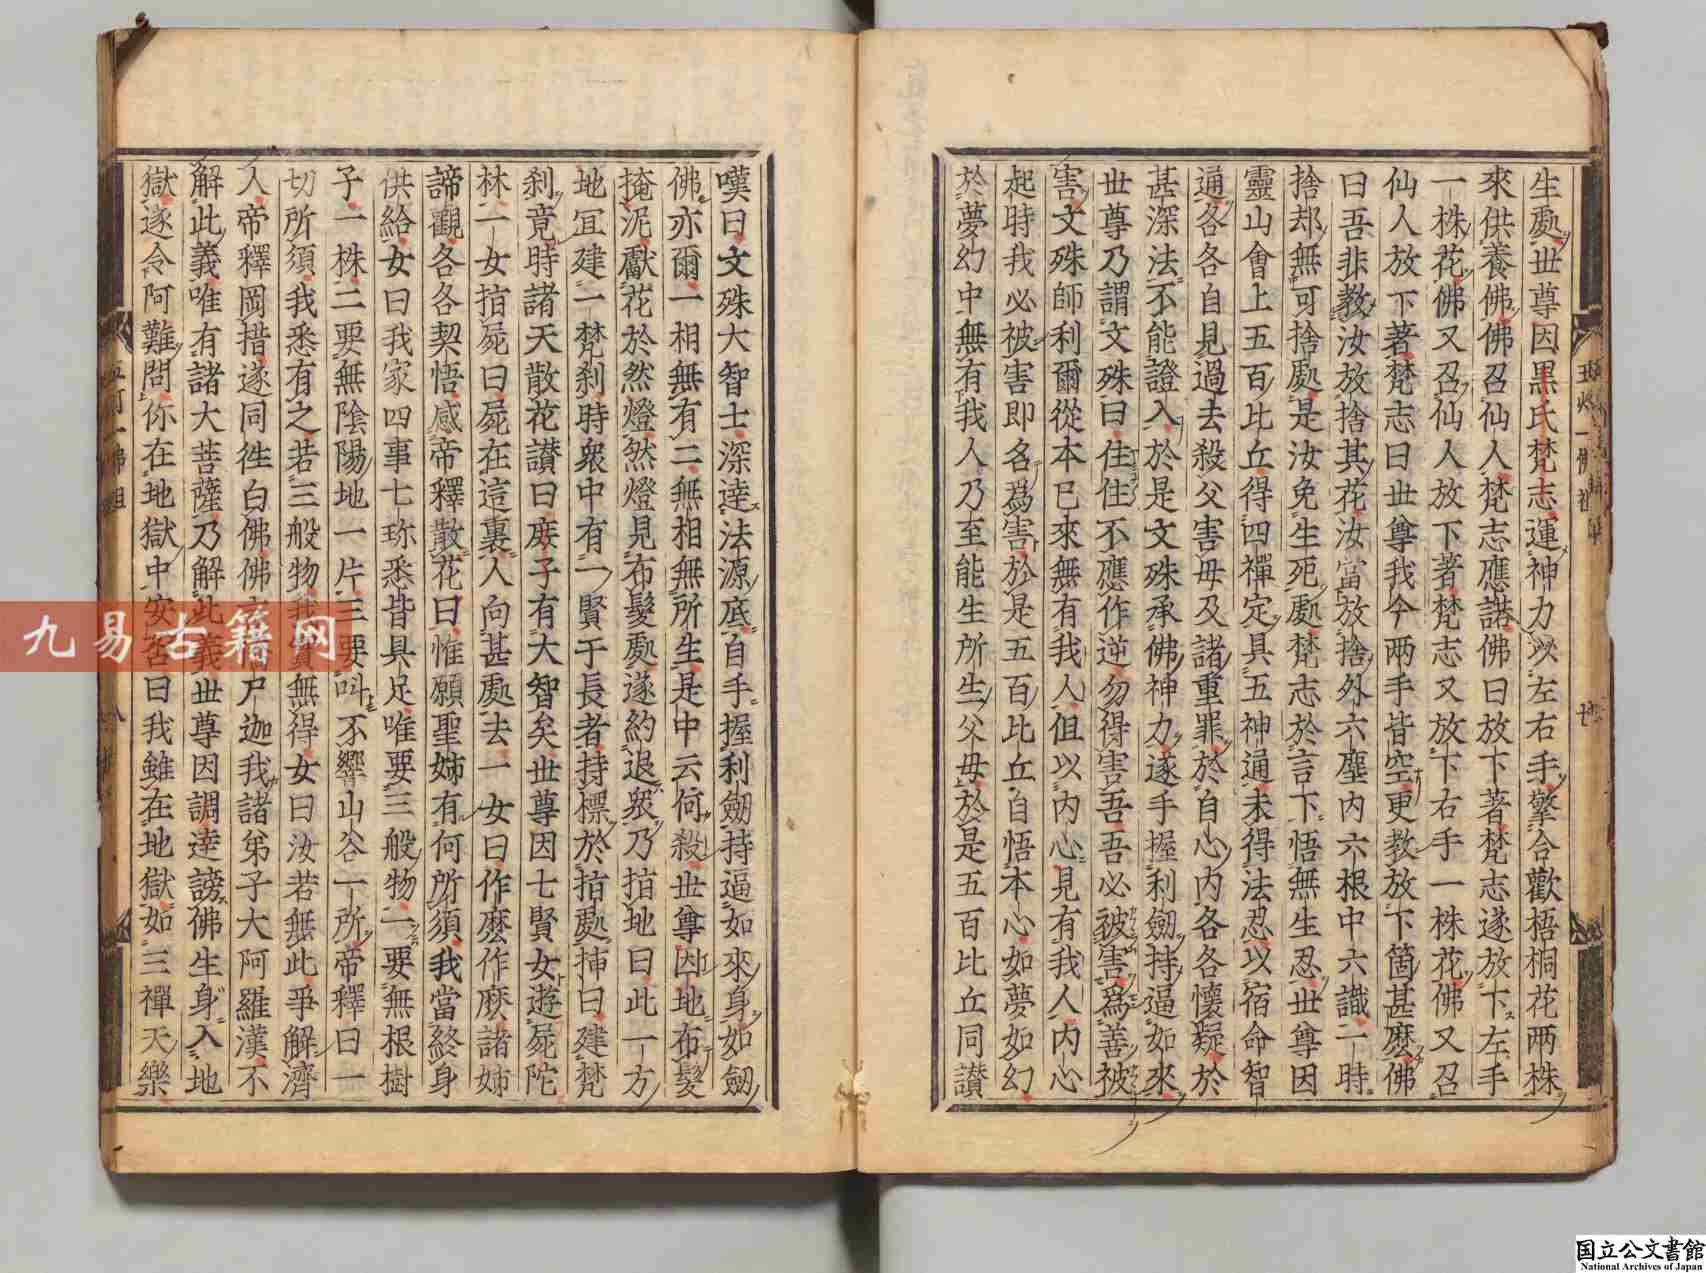 生處世尊因黒氏梵志運神力以左右手擎合歡梧桐花兩株
來供養佛佛召仙人梵志應諾佛曰放下著梵志遂放下左手
一株花佛又召仙人放下著梵志又放下右手一株花佛又召
仙人放下著梵志曰世尊我今兩手皆空更教放下箇甚麽佛
曰吾非教汝放捨其花汝當放捨外六塵内六根中六識一時
捨却無可捨處是汝免生死處梵志於言下悟無生忍世尊因
靈山會上五百比丘得四禪定具五神通未得法忍以宿命智
通各各自見過去殺父害母及諸重罪於自心内各各懷疑於
甚深法不能證入於是文殊承佛神力遂手握利劔持逼如來
世尊乃謂文殊曰住住不應作逆勿得害吾吾必被害爲善被
害文殊師利爾從本已來無有我人但以内心見有我人内心
起時我必被害即名爲害於是五百比丘自悟本心如夢如幻
於夢幻中無有我人乃至能生所生父母於是五百比丘同讃
五燈一佛祖
七
嘆曰文殊大智士深逹法源底自手握利劔持逼如來身如劔
佛亦爾一相無有二無相無所生是中云何殺世尊因地布髮
掩泥獻花於然燈然燈見布髮處遂約退衆乃指地曰此一方
地冝建一梵刹時衆中有一賢于長者持標於指處揷曰建梵
刹竟時諸天散花讃曰庻子有大智矣世尊因七賢女遊屍陀
林一女指屍曰屍在這裏人向甚處去一女曰作麽作麽諸姉
諦觀各各契悟感帝釋散花曰惟願聖姉有何所須我當終身
供給女曰我家四事七珎悉皆具足唯要三般物一要無根樹
子一株二要無陰陽地一片三要叫不響山谷一所帝釋曰一
切所須我悉有之若三般物我實無得女曰汝若無此爭解濟
人帝釋罔措遂同徃白佛佛尸迦我諸弟子大阿羅漢不
解此義唯有諸大菩薩乃解此義世尊因調逹謗佛生身入地
獄遂令阿難問你在地獄中安否曰我雖在地獄如三禪天樂
八
九易古籍网
国立公文書館
National Archives of Japan